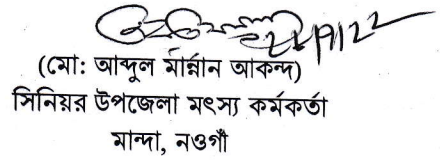 ২২/৭/১২
(মো: আব্দুল মান্নান আকন্দ)
সিনিয়র উপজেলা মৎস্য কর্মকর্তা
মান্দা, নওগাঁ